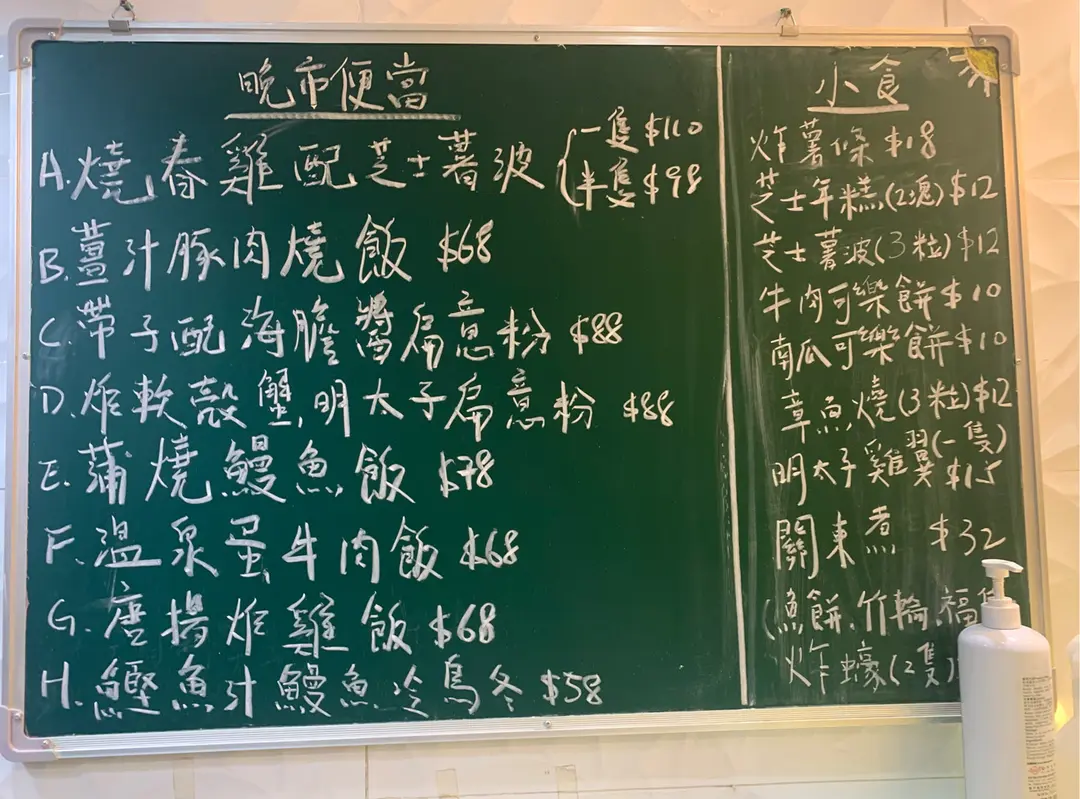 晚市便當
A.燒春雞配芝士薯波 一隻 $110
半隻 $98
B.薑汁豚肉燒飯 $68
C.帶子配海膽醬扁意粉 $88
D.炸軟殼蟹,明太子扁意粉 $88
E.蒲燒鰻魚飯 $78
F.溫泉蛋牛肉飯 $68
G.唐揚炸雞飯 $68
H.鰹魚汁鰻魚冷烏冬 $58
小食
炸薯條 $18
芝士年糕(2塊) $12
芝士薯波(3粒) $12
牛肉可樂餅 $10
南瓜可樂餅 $10
章魚燒(3粒) $12
明太子雞翼(一隻) $15
關東煮 $32
(魚餅.竹輪.福
炸蠔(2隻)